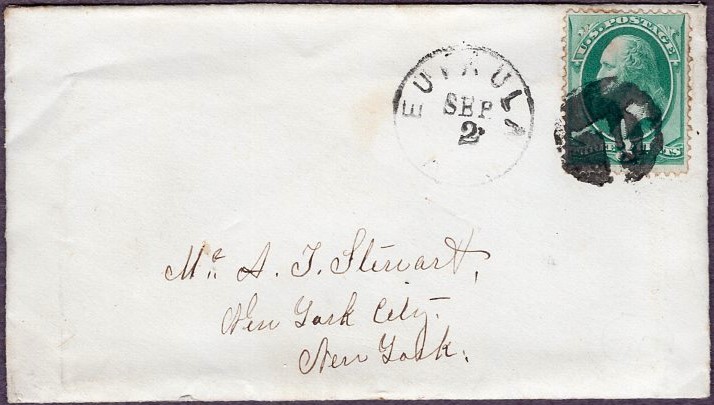 U.S. POSTAGE
EUFAULA
SEP
2
CENTS
Mr. A. T. Stewart,
New York City.
New York.